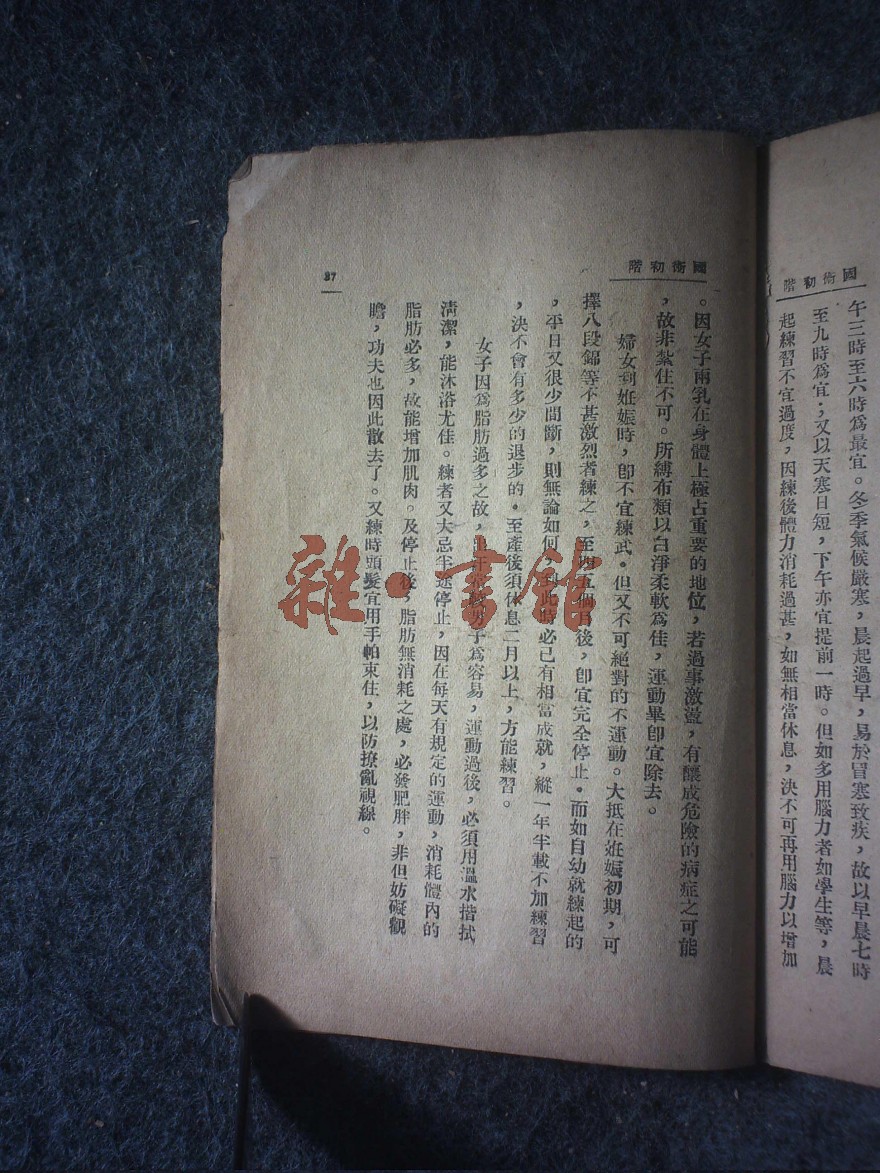 國術初階
午三時至六時爲最宜。冬季氣候嚴寒，晨起過早，易於冒寒致疾，故以早晨七時
至九時爲宜；又以天寒日短，下午亦宜提前一時。但如多用腦力者如學生等，晨
起練習不宜過度，因練後體力消耗過甚，如無相當休息，決不可再用腦力以增加
國術初階
。因女子兩乳在身體上極占重要的地位，若過事激盪，有釀成危險的病症之可能
，故非紮住不可。所縛布類以白淨柔軟爲佳，運動畢卽宜除去。
婦女到妊娠時，卽不宜練武。但又不可絕對的不運動。大抵在妊娠初期，可
擇八段錦等不甚激烈者練之，至四五個月後，卽宜完全停止。而如自幼就練起的
，平日又很少間斷，則無論如何，到此時必已有相當成就，縱一年半載不加練習
，決不會有多少的退步的。至產後須休息二月以上，方能練習。
女子因爲脂肪過多之故，出汗 男子爲容易，運動過後，必須用溫水揩拭
淸潔，能沐浴尤佳。練者又大忌半途停止，因在每天有規定的運動，消耗體內的
脂肪必多，故能增加肌肉。及停止後，脂肪無消耗之處，必發肥胖，非但妨礙觀
瞻，功夫也因此散去了。又練時頭髮宜用手帕束住，以防撩亂視線。
37
雜·書館